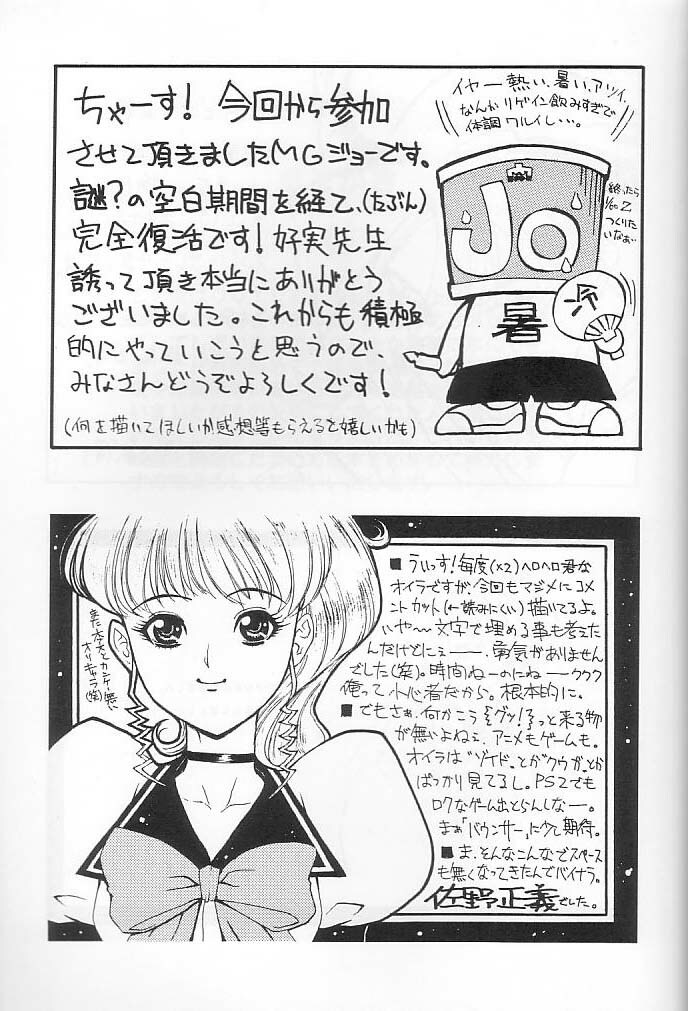 ちゃーす! 今回から参加
させて頂きましたMGジョーです。
謎?の空白期間を経て、(たぶん)
完全復活です! 好実先生
誘って頂き本当にありがとう
ございました。これからも積極
的にやっていこうと思うので、
みなさんどうぞよろしくです!
(何を描いてほしいか感想等もらえると嬉しいかも)
イヤー熱い、暑い、アツイ、
なんかリゲイン飲みすぎで
体調ワルイし…。
Jo
終ったら
1/60 Z
つくりた
いなぁ…
暑
■うぃっす!毎度(×2)ヘロヘロ君な
オイラですが、今回もマジメにコメ
ントカット(←読みにくい)描いてるよ。
いや〜文字で埋める事も考えた
んだけどにぇー、勇気がありません
でした(笑)。時間ねーのにねークククク
俺って小心者だから。根本的に。
■でもさぁ、何かこう{グッ!}っと来る物
が無いよねぇ、アニメもゲームも。
オイラは"ゾイド"とか"クウガ"とか
ばっかり見てるし。PS2でも
ロクなゲーム出とらんしなー。
まぁ「バウンサー」に少し期待。
■ま、そんなこんなでスペース
も無くなってきたんでバイナラ。
佐野正義でした。
また本文とカンケー無い
オリキャラ(笑)